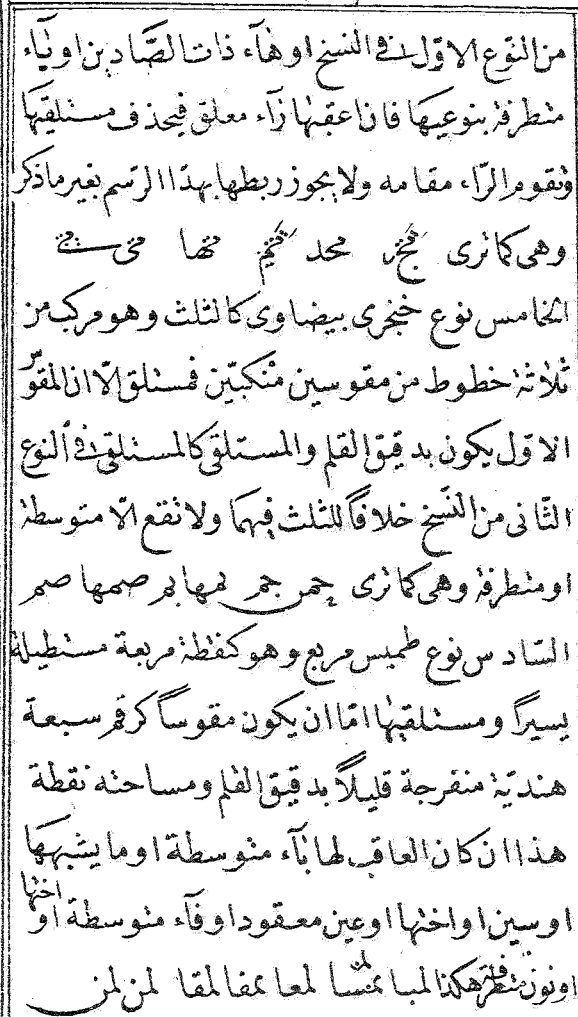 من النوع الاوّل فى النسخ او هآء ذات الصّادين او يآء
متطرفة بنوعيها فان اعقبها رآء معلق فيحذف مستلقيها
وتقوم الرآء مقامه ولا يجوز ربطها بهذا الرسم بغير ما ذكر
وهى كما ترى محمد متها متى
الخامس نوع خنجرى بيضاوى كالثلث وهو مركب من
ثلاثة خطوط من مقوسين منكبّين فمستلق الّا ان المقوّس
الاوّل يكون بدقيق القلم والمستلقى كالمستلقى فى النوع
الثّانى من النّسخ خلافاً للثلث فيهما ولا تقع الّا متوسطة
او متطرفة وهى كما ترى حمر جم لمها بم صمها صم
السّادس نوع طميس مربع وهو كنقطة مربعة مستطيلة
يسيراً ومستلقيها امّا ان يكون مقوساً كرقم سبعة
هنديّة منفرجة قليلاً بدقيق القلم ومساحته نقطة
هذا ان كان العاقب لها بآء متوسطة او ما يشبهها
او سين او اختها او عين معقود او فآء متوسطة او اختها
او نون متطرفة هكذا لمبا لمسا لمعا لمفا لمقا لمن لمن